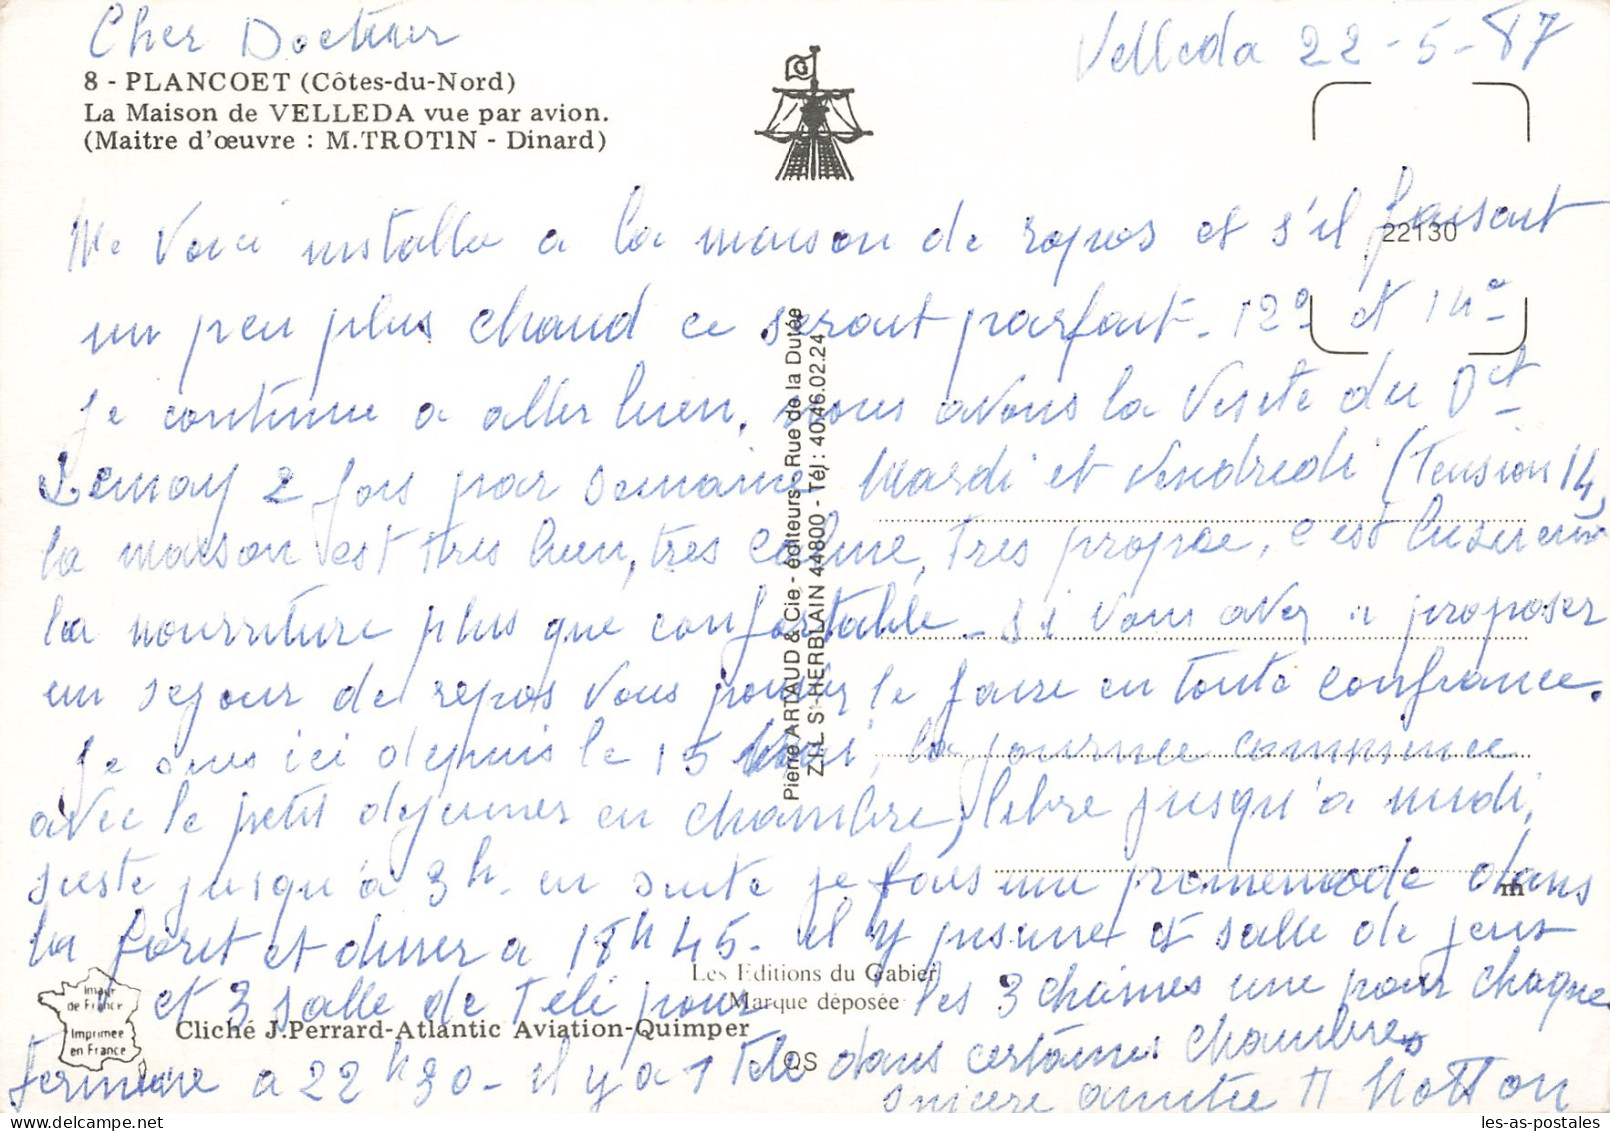 Cher Docteur
Velleda 22-5-87
8 - PLANCOET (Côtes-du-Nord)
La Maison de VELLEDA vue par avion.
(Maitre d'œuvre : M. TROTIN - Dinard)
22130
Me voici installée a la maison de repos et s'il faisait
un peu plus chaud ce serait parfait - 12° et 14°
je continue a aller bien, nous avons la visite du Dct
Lemay 2 fois par semaine Mardi et vendredi (Tension 14,
la maison est tres bien, tres calme, tres propre, c est
la nourriture plus que confortable - si vous avez a proposer
un sejour de repos vous pouvez le faire en toute confiance.
je suis ici depuis le 15 Mai, la journee commence
avec le petit dejeuner en chambre, libre jusqu'a midi,
sieste jusqu'a 3h - en suite je fais une promenade dans
la foret et diner a 18h45 - il y piscine et salle de jeux
et 3 salle de Téli pour les 3 chaines une pour chaque
fermeture a 22h30 - il y a 1 Télé dans certaines chambres
sincere amitie M Motton
Pierre ARTAUD & Cie - éditeurs - Rue de la Dutée
Z.I.L. St-HERBLAIN 44800 - Tél : 40.46.02.24
Les Editions du Gabier
Marque déposée
Image de France
Imprimee en France
Cliché J.Perrard-Atlantic Aviation-Quimper
QS
les-as-postales